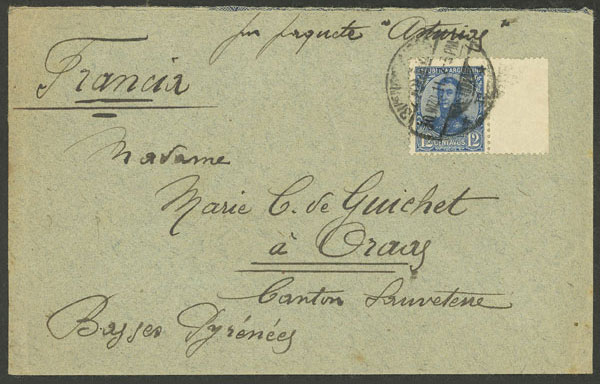 por paquete "Asturias"
Francia
REPUBLICA ARGENTINA
12 CENTAVOS 12
Madame
Marie C. de Guichet
à Oraas
Canton Sauveterre
Basses Pyrénées